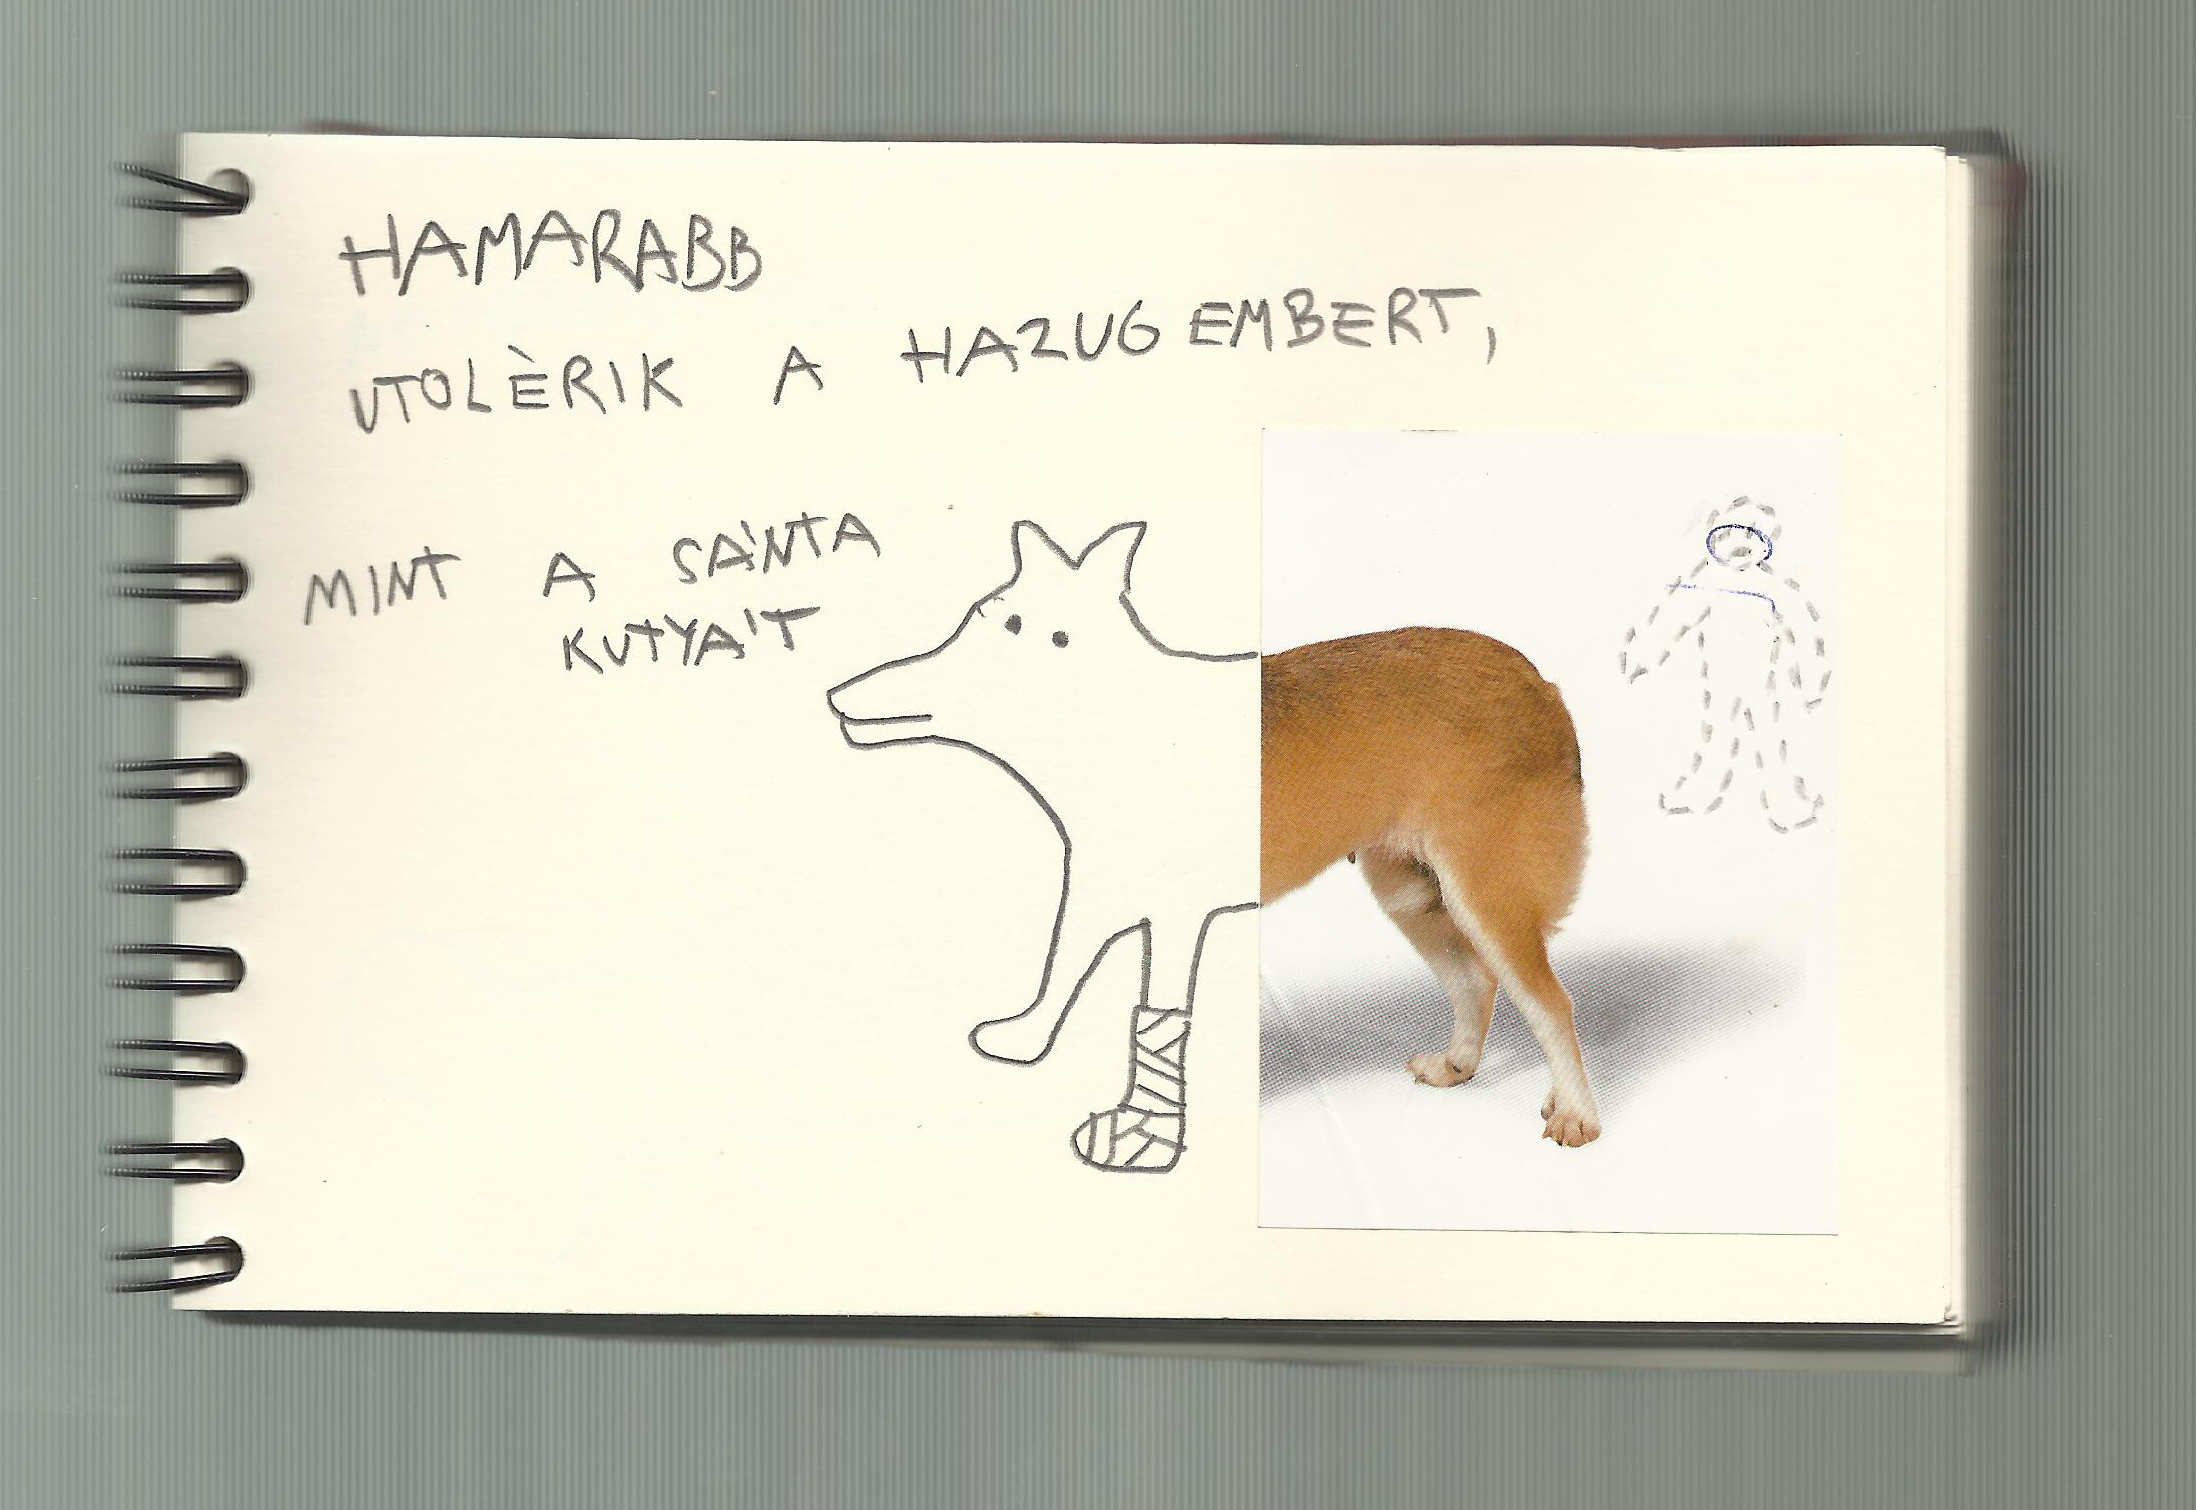 HAMARABB
UTOLÈRIK A HAZUG EMBERT,
MINT A SÁNTA
KUTYÁ'T